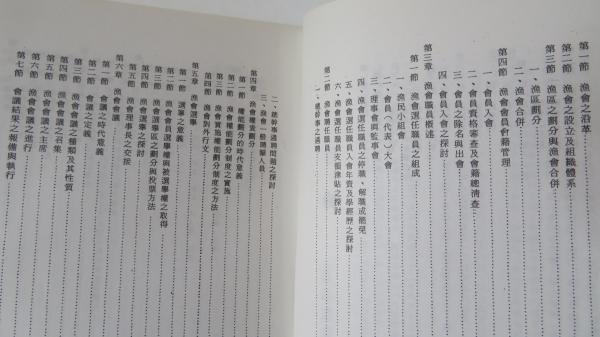 第一節 漁會之沿革
第二節 漁會之設立及組織體系
第三節 漁區之劃分與漁會合併
一、漁區劃分
二、漁會合併
第四節 漁會會員會籍管理
一、會員入會
二、會員資格審查及會籍總清查
三、會員之除名與出會
四、會員入會之探討
第三章 漁會職員概述
第一節 漁會選任職員之組成
一、漁民小組會
二、會員（代表）大會
三、理事會與監事會
四、漁會選任職員之停職、解職或罷免
五、漁會選任職員入會年資及學經歷之探討
六、漁會選任職員支領津貼之探討
第二節 漁會聘任職員
一、總幹事之遴聘
二、總幹事遴聘問題之探討
三、漁會一般聘雇人員
第四章 漁會權能劃分
第一節 權能劃分的時代意義
第二節 漁會權能劃分制度之實施
第三節 漁會實施權能劃分制度之方法
第四節 漁會對外行文
第五章 漁會選舉
第一節 選舉之意義
第二節 漁會會員選舉權與被選舉權之取得
第三節 漁事小組選區劃分與投票方法
第四節 漁會選舉之探討
第五節 漁會理事長之交接
第六章 漁會會議
第一節 會議之時代意義
第二節 會議之定義
第三節 漁會會議之種類及其性質
第四節 漁會會議之召集
第五節 漁會會議之主席
第六節 漁會會議之進行
第七節 會議結果之報備與執行